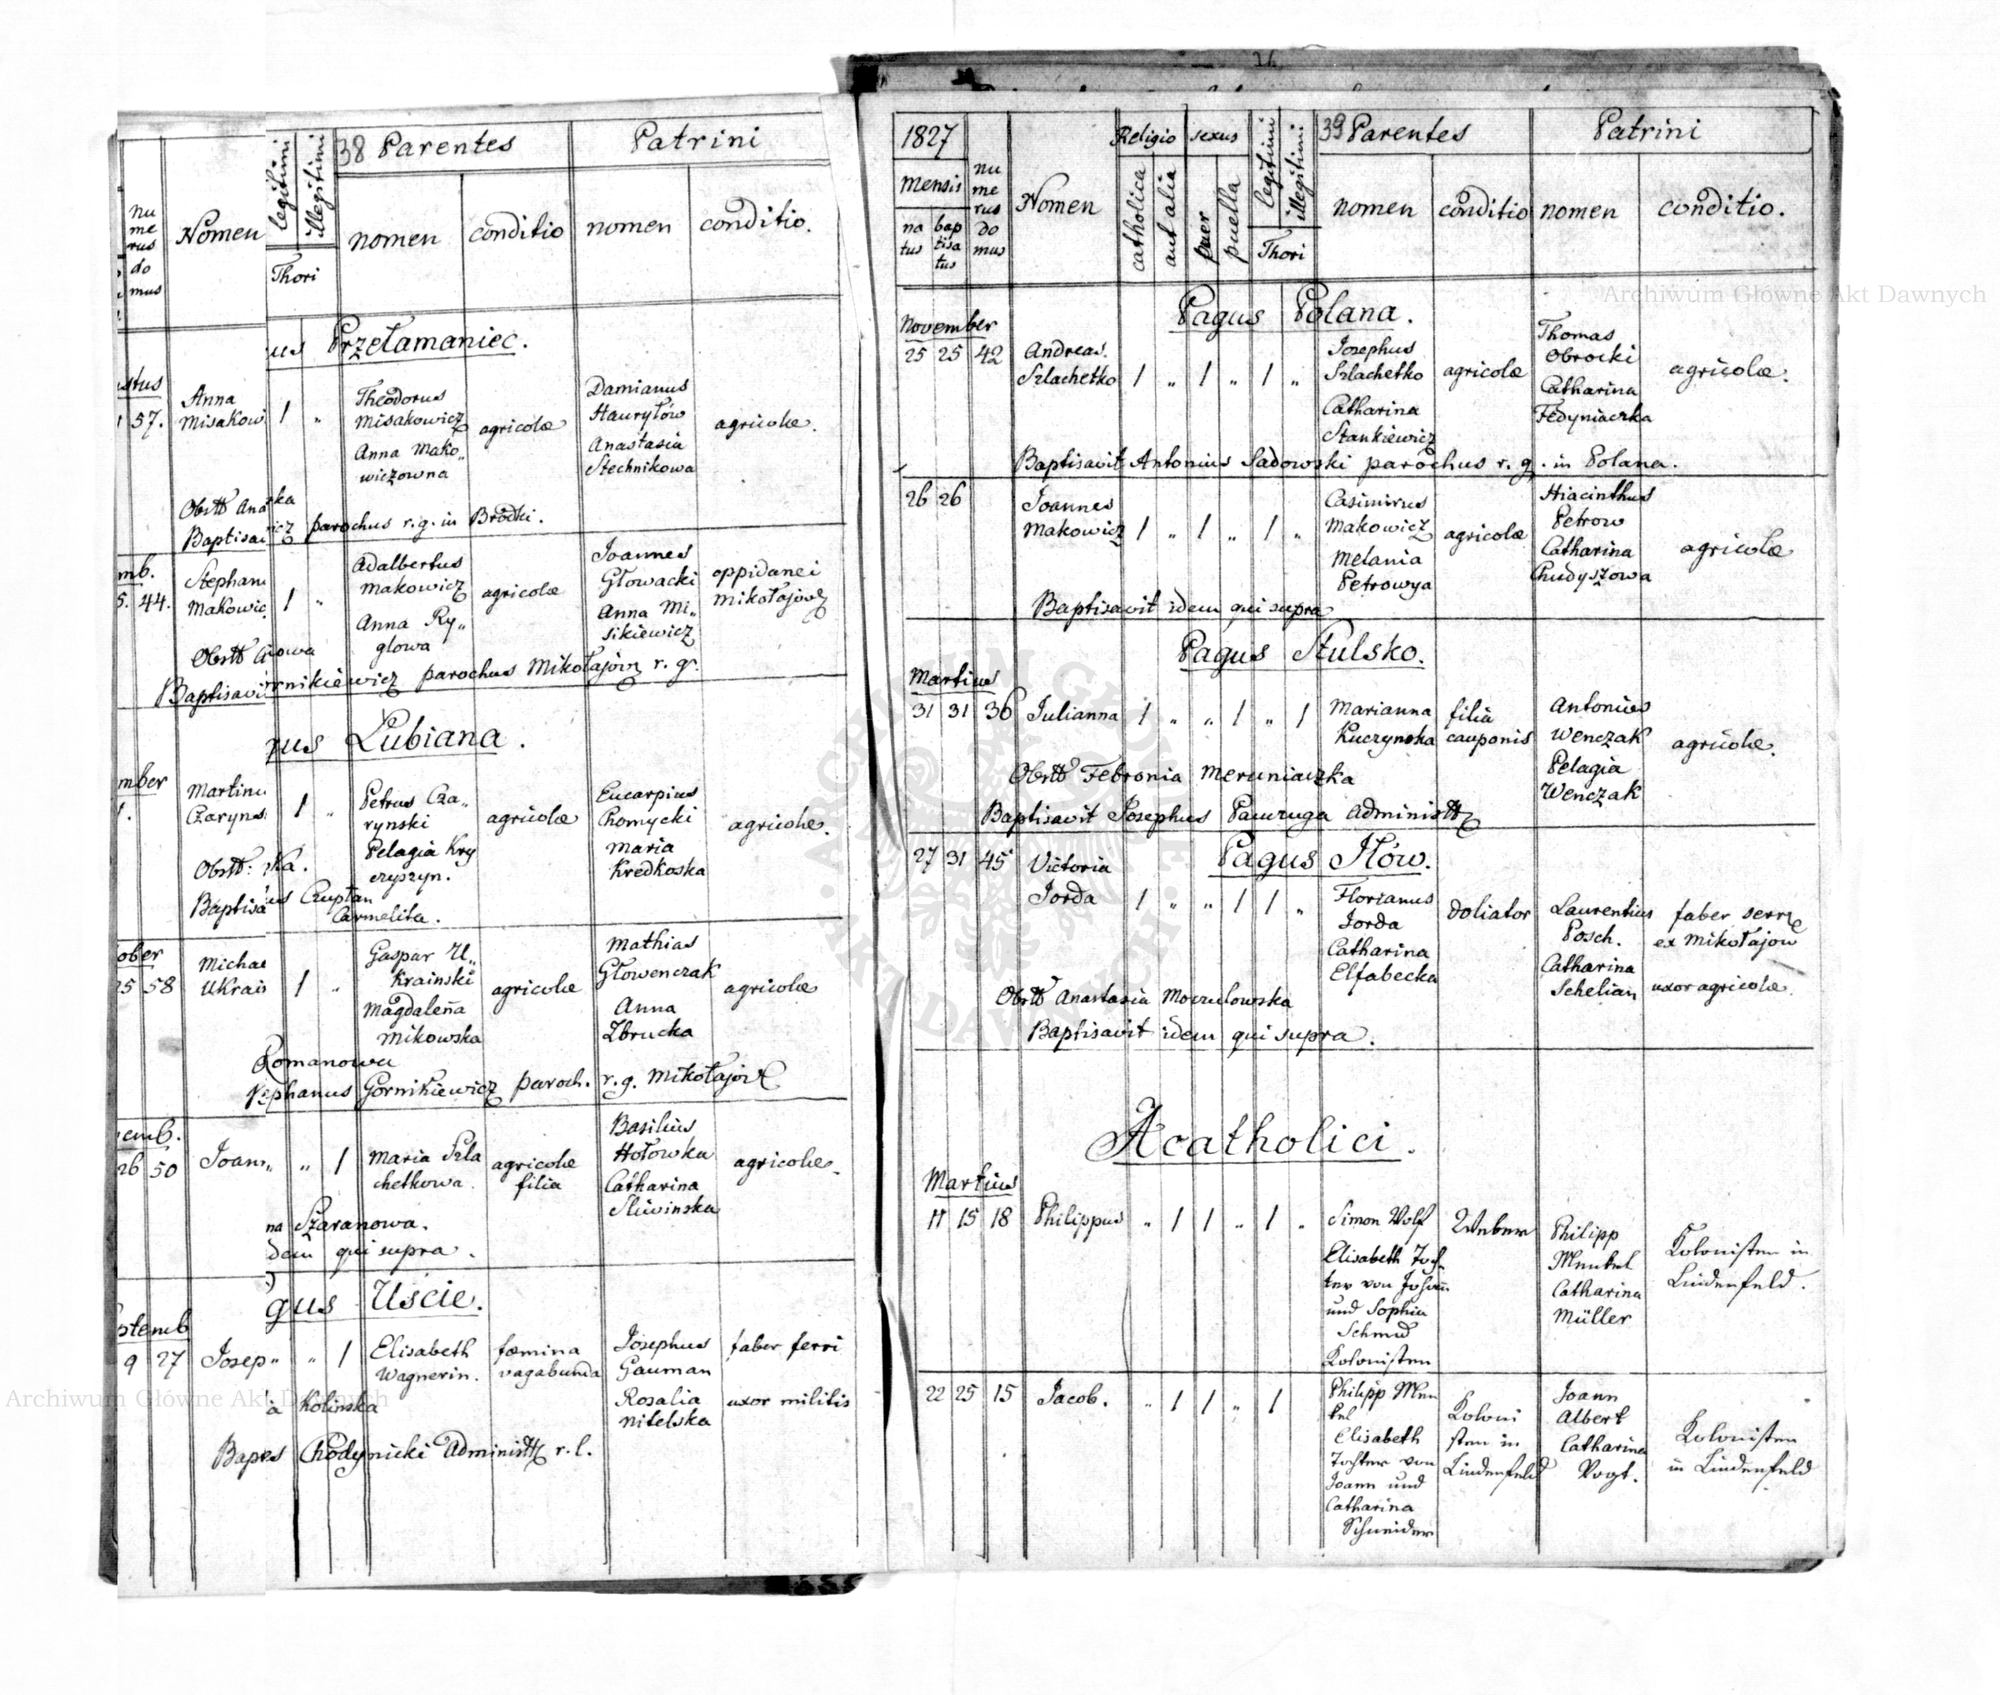 38 Parentes
Patrini
nu
me
rus
do
mus
Nomen
legitimi
illegitimi
Thori
nomen
conditio
nomen
conditio.
us Przełamaniec.
stus
57.
Anna
Misakow
1 "
Theodorus
Misakowicz
Anna Mako„
wiczowna
agricolæ
Damianus
Hauryłów
Anastasia
Stechnikowa
agricolæ.
Obstt Ana ka
Baptisa icz parochus r. g. in Brodki.
mb.
5. 44.
Stephan
Makowic
1 "
Adalbertus
Makowicz
Anna Ry„
glowa
agricolæ
Joannes
Głowacki
Anna Mi„
sikiewicz
oppidanei
Mikołajów
Obstt A owa
Baptisavi rnikiewicz parochus Mikołajow r. g.
gus Lubiana.
mber
1.
Martinu
Czaryns
1 "
Petrus Cza„
rynski
Pelagia Kry
czyszyn.
agricolæ
Eucarpius
Chomycki
Maria
Kredkoska
agricolæ.
Obstt: ka.
Baptisa us Czuptan
Carmelita.
ober
25 58
Michae
Ukrais
1 "
Gaspar U„
krainski
Magdalena
Mikowska
agricolæ
Mathias
Głowenczak
Anna
Zbrucka
agricolæ
Romanowa
phanus Gornikiewicz paroch. r. g. Mikołajow
cemb.
26 50
Joan
" 1
Maria Szla
chetkowa.
agricolæ
filia
Basilius
Hołowka
Catharina
Sliwinska
agricolæ.
na Szaranowa.
dem qui supra.
gus Uście.
ptemb
9 27
Josep
" 1
Elisabeth
Wagnerin.
fœmina
vagabunda
Josephus
Gauman
Rosalia
Nitelska
faber ferri
uxor militis
a Kolinska
Bap s Chodynicki Administr r. l.
1827
mensis
na
tus
bap
tisa
tus
nu
me
rus
do
mus
Nomen
Religio
catholica
aut alia
sexus
puer
puella
legitimi
illegitimi
Thori
39 Parentes
nomen
conditio
Patrini
nomen
conditio.
Pagus Polana.
November
25 25 42
Andreas.
Szlachetko
1 " 1 " 1 "
Josephus
Szlachetko
Catharina
Stankiewicz
agricolæ
Thomas
Obrocki
Catharina
Fedyniaczka
agricolæ.
Baptisavit Antonius Sadowski parochus r. g. in Polana.
26 26
Joannes
Makowicz
1 " 1 " 1 "
Casimirus
Makowicz
Melania
Petrowya
agricolæ
Hiacinthus
Petrow
Catharina
Chudyszowa
agricolæ
Baptisavit idem qui supra
Pagus Stulsko.
Martius
31 31 36 Julianna 1 " " 1 " 1
Marianna
Kuczynska
filia
cauponis
Antonius
Wenczak
Pelagia
Wenczak
agricolæ.
Obstt Febronia Meruniaczka
Baptisavit Josephus Pauzuga Administr
Pagus Jłów.
27 31 45 Victoria
Jorda
1 " " 1 1 "
Florianus
Jorda
Catharina
Elfabecka
doliator
Laurentius
Posch.
Catharina
Schelian
faber serræ
ex Mikołajow
uxor agricolæ.
Obstt Anastasia Moczulowska
Baptisavit idem qui supra.
Acatholici.
Martius
11 15 18 Philippus " 1 1 " 1 "
Simon Wolf
Elisabeth Toch
ter von Johann
und Sophia
Schmid
Kolonisten
Weber
Philipp
Menkel
Catharina
Müller
Kolonisten in
Lindenfeld.
22 25 15 Jacob. " 1 1 " 1
Philipp Men
kel
Elisabeth
Tochter von
Joann und
Catharina
Schneider
Koloni
sten in
Lindenfeld
Joann
Albert
Catharina
Vogt.
Kolonisten
in Lindenfeld
Archiwum Główne Akt Dawnych
Archiwum Główne Akt Dawnych
ARCHIWUM GŁÓWNE
AKT DAWNYCH